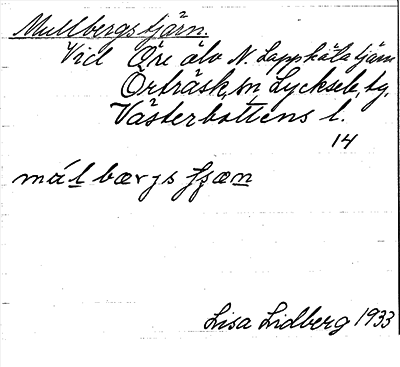 Mullbergstjärn.
Vid Öre älv N. Lappkåtatjärn
Örträsk, sn Lycksele, tg.
Västerbottens l.
14
Lisa Lidberg 1933